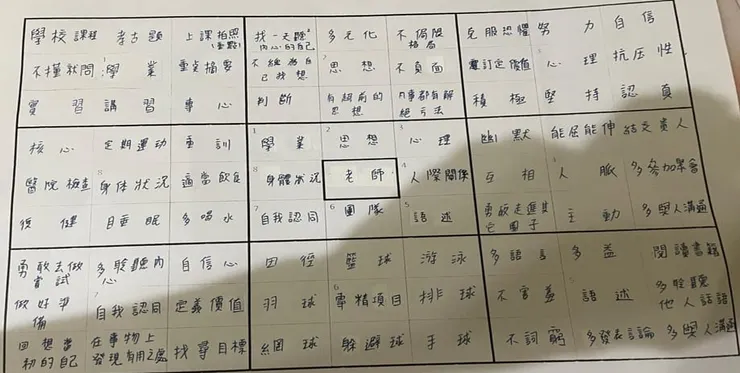 學校課程 考古題 上課拍照(重點)
不懂就問 學業 重點摘要
實習 講習 專心
找一天聽內心的自己 多元化 不侷限格局
不能為自己找想 思想 不負面
判斷 有超前的思想 凡事都有解絕方法
克服恐懼 努力 自信
重訂定價值 心理 抗壓性
積極 堅持 認真
核心 定期運動 重訓
醫院檢查 身体狀況 適當飲食
復健 自垂眠 多喝水
1 學業 2 思想 3 心理
8 身體狀況 老師 4 人際關係
7 自我認同 6 團隊 5 語述
幽默 能屈能伸 結交貴人
互相 人脈 多參加聚會
勇敢走進其它圈子 主動 多與人溝通
勇敢去做嘗試 多聆聽內心 自信心
做好準備 7 自我認同 定義價值
回想當初的自己 在事物上發現有用之處 找尋目標
田徑 籃球 游泳
羽球 專精項目 排球
網球 躲避球 手球
多語言 多益 閱讀書籍
不害羞 語述 多聆聽他人話語
不詞窮 多發表言論 多與人溝通